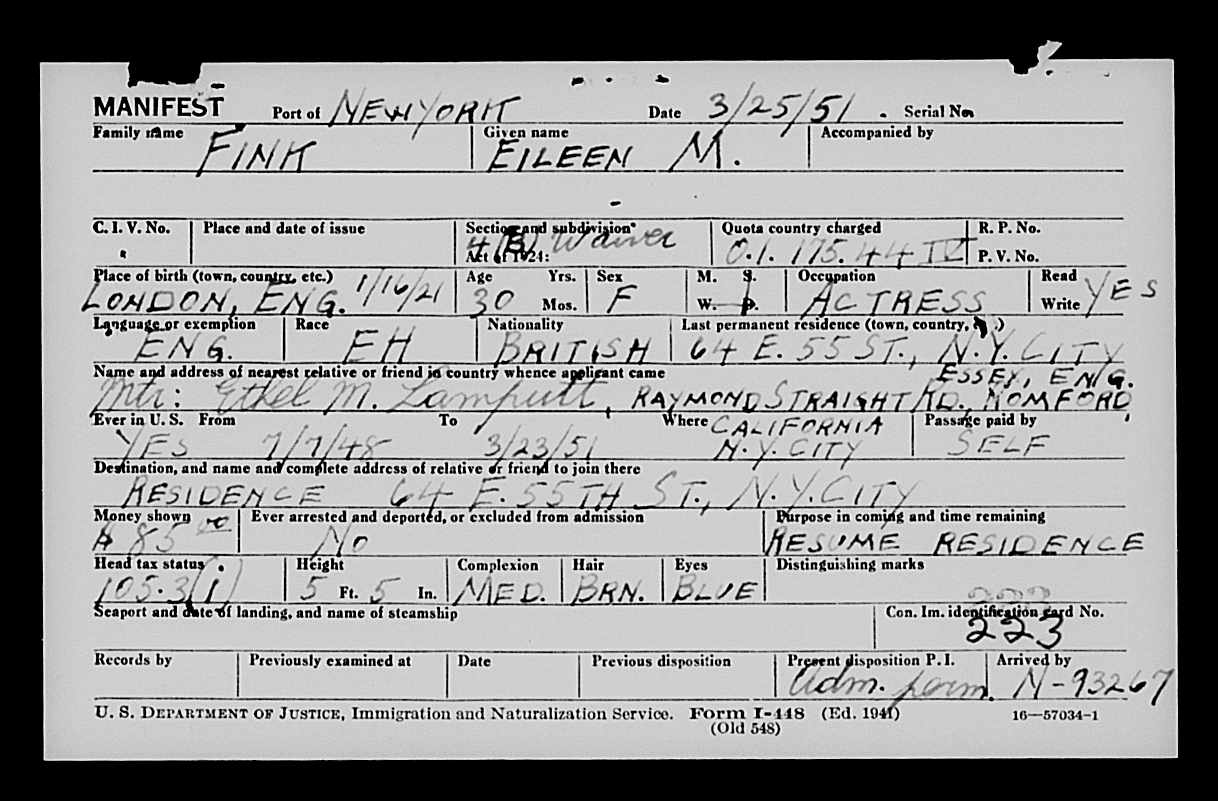 MANIFEST Port of NEW YORK Date 3/25/51 . Serial No.
Family name FINK Given name EILEEN M. Accompanied by
C. I. V. No. Place and date of issue Section and subdivision Quota country charged R. P. No.
4 (B) Waiver 0.1. 175.44 IV
Act of 1924: P. V. No.
Place of birth (town, country, etc.) 1/16/21 Age Yrs. Sex M. S. Occupation Read
LONDON, ENG. 30 Mos. F W. D. ACTRESS Write YES
Language or exemption Race Nationality Last permanent residence (town, country, )
ENG. EH BRITISH 64 E. 55 ST., N.Y. CITY
Name and address of nearest relative or friend in country whence applicant came ESSEX, ENG.
Mtr: Ethel M. RAYMOND STRAIGHT RD., ROMFORD,
Ever in U. S. From To Where CALIFORNIA Passage paid by
YES 7/7/48 3/23/51 N.Y. CITY SELF
Destination, and name and complete address of relative or friend to join there
RESIDENCE 64 E. 55TH ST., N.Y. CITY
Money shown Ever arrested and deported, or excluded from admission Purpose in coming and time remaining
$ 85 00 NO RESUME RESIDENCE
Head tax status Height Complexion Hair Eyes Distinguishing marks
105.3(1) 5 Ft. 5 In. MED. BRN. BLUE
Seaport and date of landing, and name of steamship Con. Im. identification card No.
223
Records by Previously examined at Date Previous disposition Present disposition P. I. Arrived by
Adm. perm. N-93267
U. S. DEPARTMENT OF JUSTICE, Immigration and Naturalization Service. Form I-448 (Ed. 1941) 16—57034-1
(Old 548)